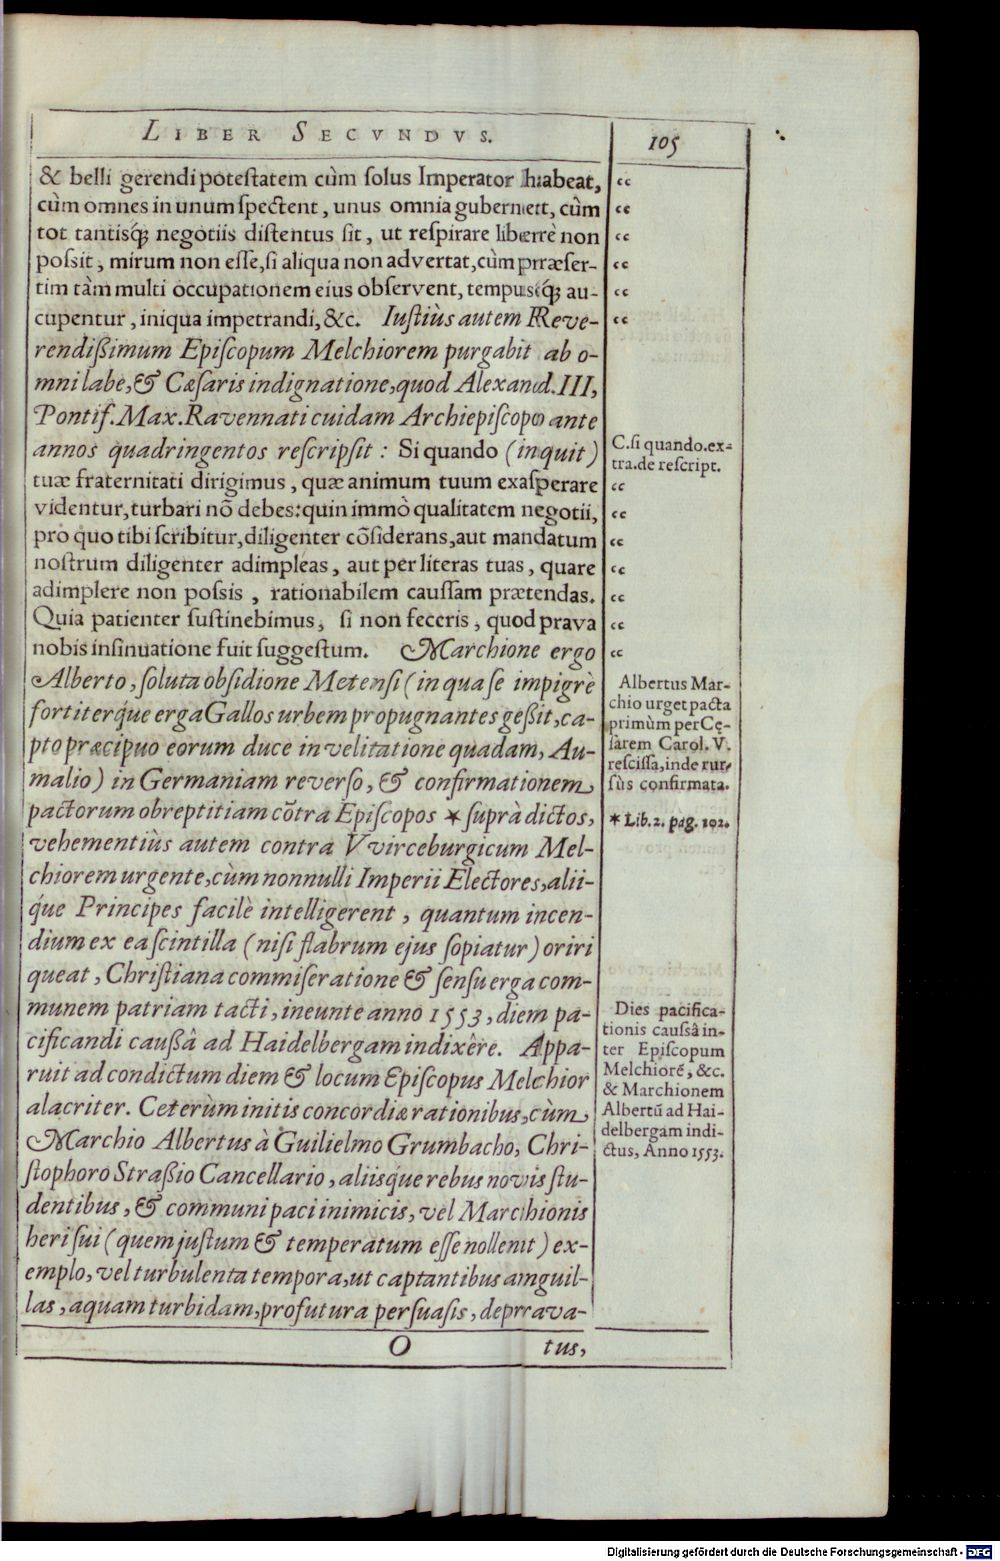 LIBER SECVNDVS.
105
& belli gerendi potestatem cùm solus Imperator habeat,
cùm omnes in unum spectent, unus omnia gubernet, cùm
tot tantisq́; negotiis distentus sit, ut respirare liberè non
possit, mirum non esse, si aliqua non advertat, cùm præser-
tim tàm multi occupationem eius observent, tempusq́; au-
cupentur, iniqua impetrandi, &c. Iustiùs autem Reve-
rendißimum Episcopum Melchiorem purgabit ab o-
mni labe, & Cæsaris indignatione, quod Alexand. III,
Pontif. Max. Ravennati cuidam Archiepiscopo ante
annos quadringentos rescripsit: Si quando (inquit)
tuæ fraternitati dirigimus, quæ animum tuum exasperare
videntur, turbari nō debes: quin immò qualitatem negotii,
pro quo tibi scribitur, diligenter cōsiderans, aut mandatum
nostrum diligenter adimpleas, aut per literas tuas, quare
adimplere non possis, rationabilem caussam prætendas.
Quia patienter sustinebimus, si non feceris, quod prava
nobis insinuatione fuit suggestum. Marchione ergo
Alberto, soluta obsidione Metensi (in qua se impigrè
fortiterq́ue erga Gallos urbem propugnantes geßit, ca-
pto præcipuo eorum duce in velitatione quadam, Au-
malio) in Germaniam reverso, & confirmationem
pactorum obreptitiam cōtra Episcopos * suprà dictos,
vehementiùs autem contra VVirceburgicum Mel-
chiorem urgente, cùm nonnulli Imperii Electores, alii-
q́ue Principes facilè intelligerent, quantum incen-
dium ex ea scintilla (nisi flabrum ejus sopiatur) oriri
queat, Christiana commiseratione & sensu erga com-
munem patriam tacti, ineunte anno 1553, diem pa-
cificandi caußâ ad Haidelbergam indixêre. Appa-
ruit ad condictum diem & locum Episcopus Melchior
alacriter. Ceterùm initis concordiæ rationibus, cùm
Marchio Albertus à Guilielmo Grumbacho, Chri-
stophoro Straßio Cancellario, aliisq́ue rebus novis stu-
dentibus, & communi paci inimicis, vel Marchionis
heri sui (quem justum & temperatum esse nollent) ex-
emplo, vel turbulenta tempora, ut captantibus anguil-
las, aquam turbidam, profutura persuasis, deprava-
O
tus,
C. si quando. ex-
tra. de rescript.
Albertus Mar-
chio urget pacta
primùm per Cę-
sarem Carol. V.
rescissa, inde rur-
sùs confirmata.
* Lib. 2. pag. 102.
Dies pacifica-
tionis caussâ in-
ter Episcopum
Melchiorē, &c.
& Marchionem
Albertū ad Hai-
delbergam indi-
ctus, Anno 1553.
Digitalisierung gefördert durch die Deutsche Forschungsgemeinschaft - DFG